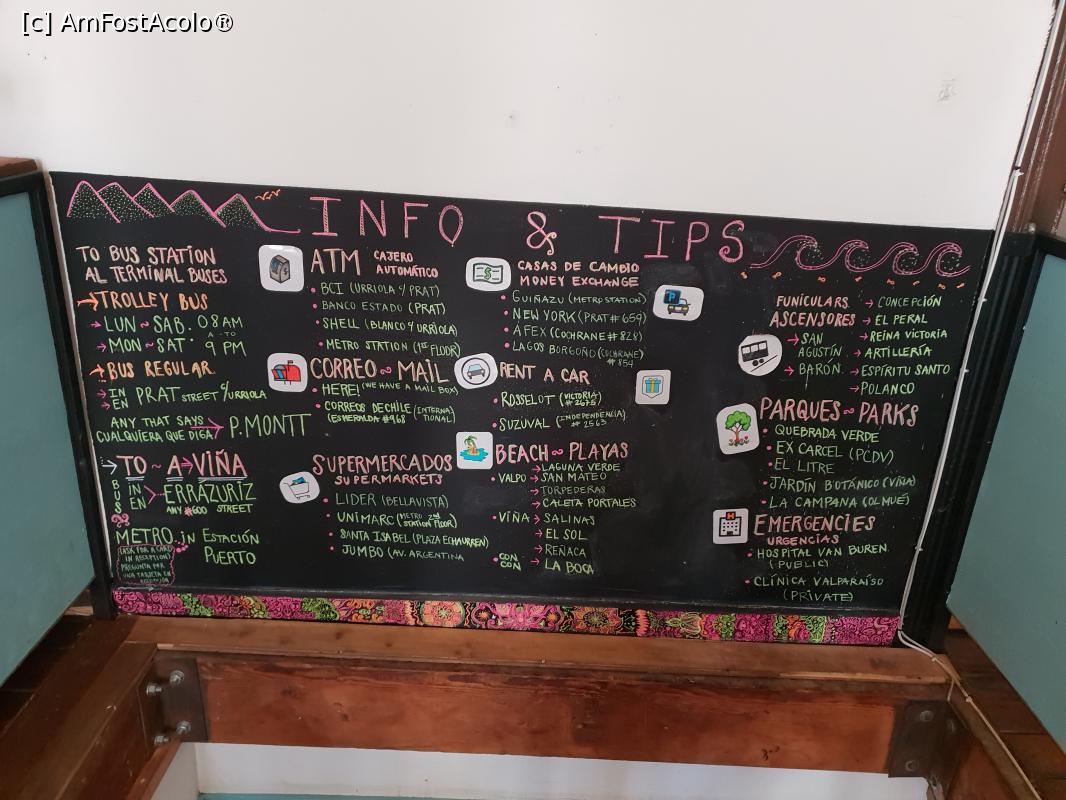 [c] AmFostAcolo®
INFO & TIPS
TO BUS STATION
AL TERMINAL BUSES
TROLLEY BUS
LUN ~ SAB. 08 AM
A - TO
MON ~ SAT 9 PM
BUS REGULAR
IN
EN PRAT STREET c/URRIOLA
ANY THAT SAYS
CUALQUIERA QUE DIGA P.MONTT
TO ~ A VIÑA
BUS IN
EN ERRÁZURIZ
ANY #600 STREET
METRO in ESTACIÓN
PUERTO
(ASK FOR A CARD
IN RECEPTION)
PREGUNTA POR
UNA TARJETA EN
RECEPCIÓN
ATM CAJERO
AUTOMÁTICO
BCI (URRIOLA Y PRAT)
BANCO ESTADO (PRAT)
SHELL (BLANCO Y URRIOLA)
METRO STATION (1ST FLOOR)
CORREO ~ MAIL
HERE! (WE HAVE A MAIL BOX)
CORREOS DE CHILE (INTERNA
TIONAL)
(ESMERALDA #968
SUPERMERCADOS
SUPERMARKETS
LIDER (BELLAVISTA)
UNIMARC (METRO 2ND
STATION FLOOR)
SANTA ISABEL (PLAZA ECHAURREN)
JUMBO (AV. ARGENTINA
CASAS DE CAMBIO
MONEY EXCHANGE
GUIÑAZU (METRO STATION)
NEW YORK (PRAT # 659)
AFEX (COCHRANE # 828)
LAGOS BORGOÑO (COCHRANE)
# 854
RENT A CAR
ROSSELOT (VICTORIA)
# 2675
SUZUVAL (INDEPENDENCIA)
# 2563
BEACH ~ PLAYAS
LAGUNA VERDE
VALPO SAN MATEO
TORPEDERAS
CALETA PORTALES
VIÑA SALINAS
EL SOL
REÑACA
CON
CON LA BOCA
FUNICULARS
ASCENSORES
SAN
AGUSTÍN
BARÓN
CONCEPCIÓN
EL PERAL
REINA VICTORIA
ARTILLERÍA
ESPÍRITU SANTO
POLANCO
PARQUES ~ PARKS
QUEBRADA VERDE
EX CARCEL (PCDV)
EL LITRE
JARDÍN BOTÁNICO (VIÑA)
LA CAMPANA (OLMUÉ)
EMERGENCIES
URGENCIAS
HOSPITAL VAN BUREN.
(PUBLIC)
CLÍNICA VALPARAÍSO
(PRIVATE)